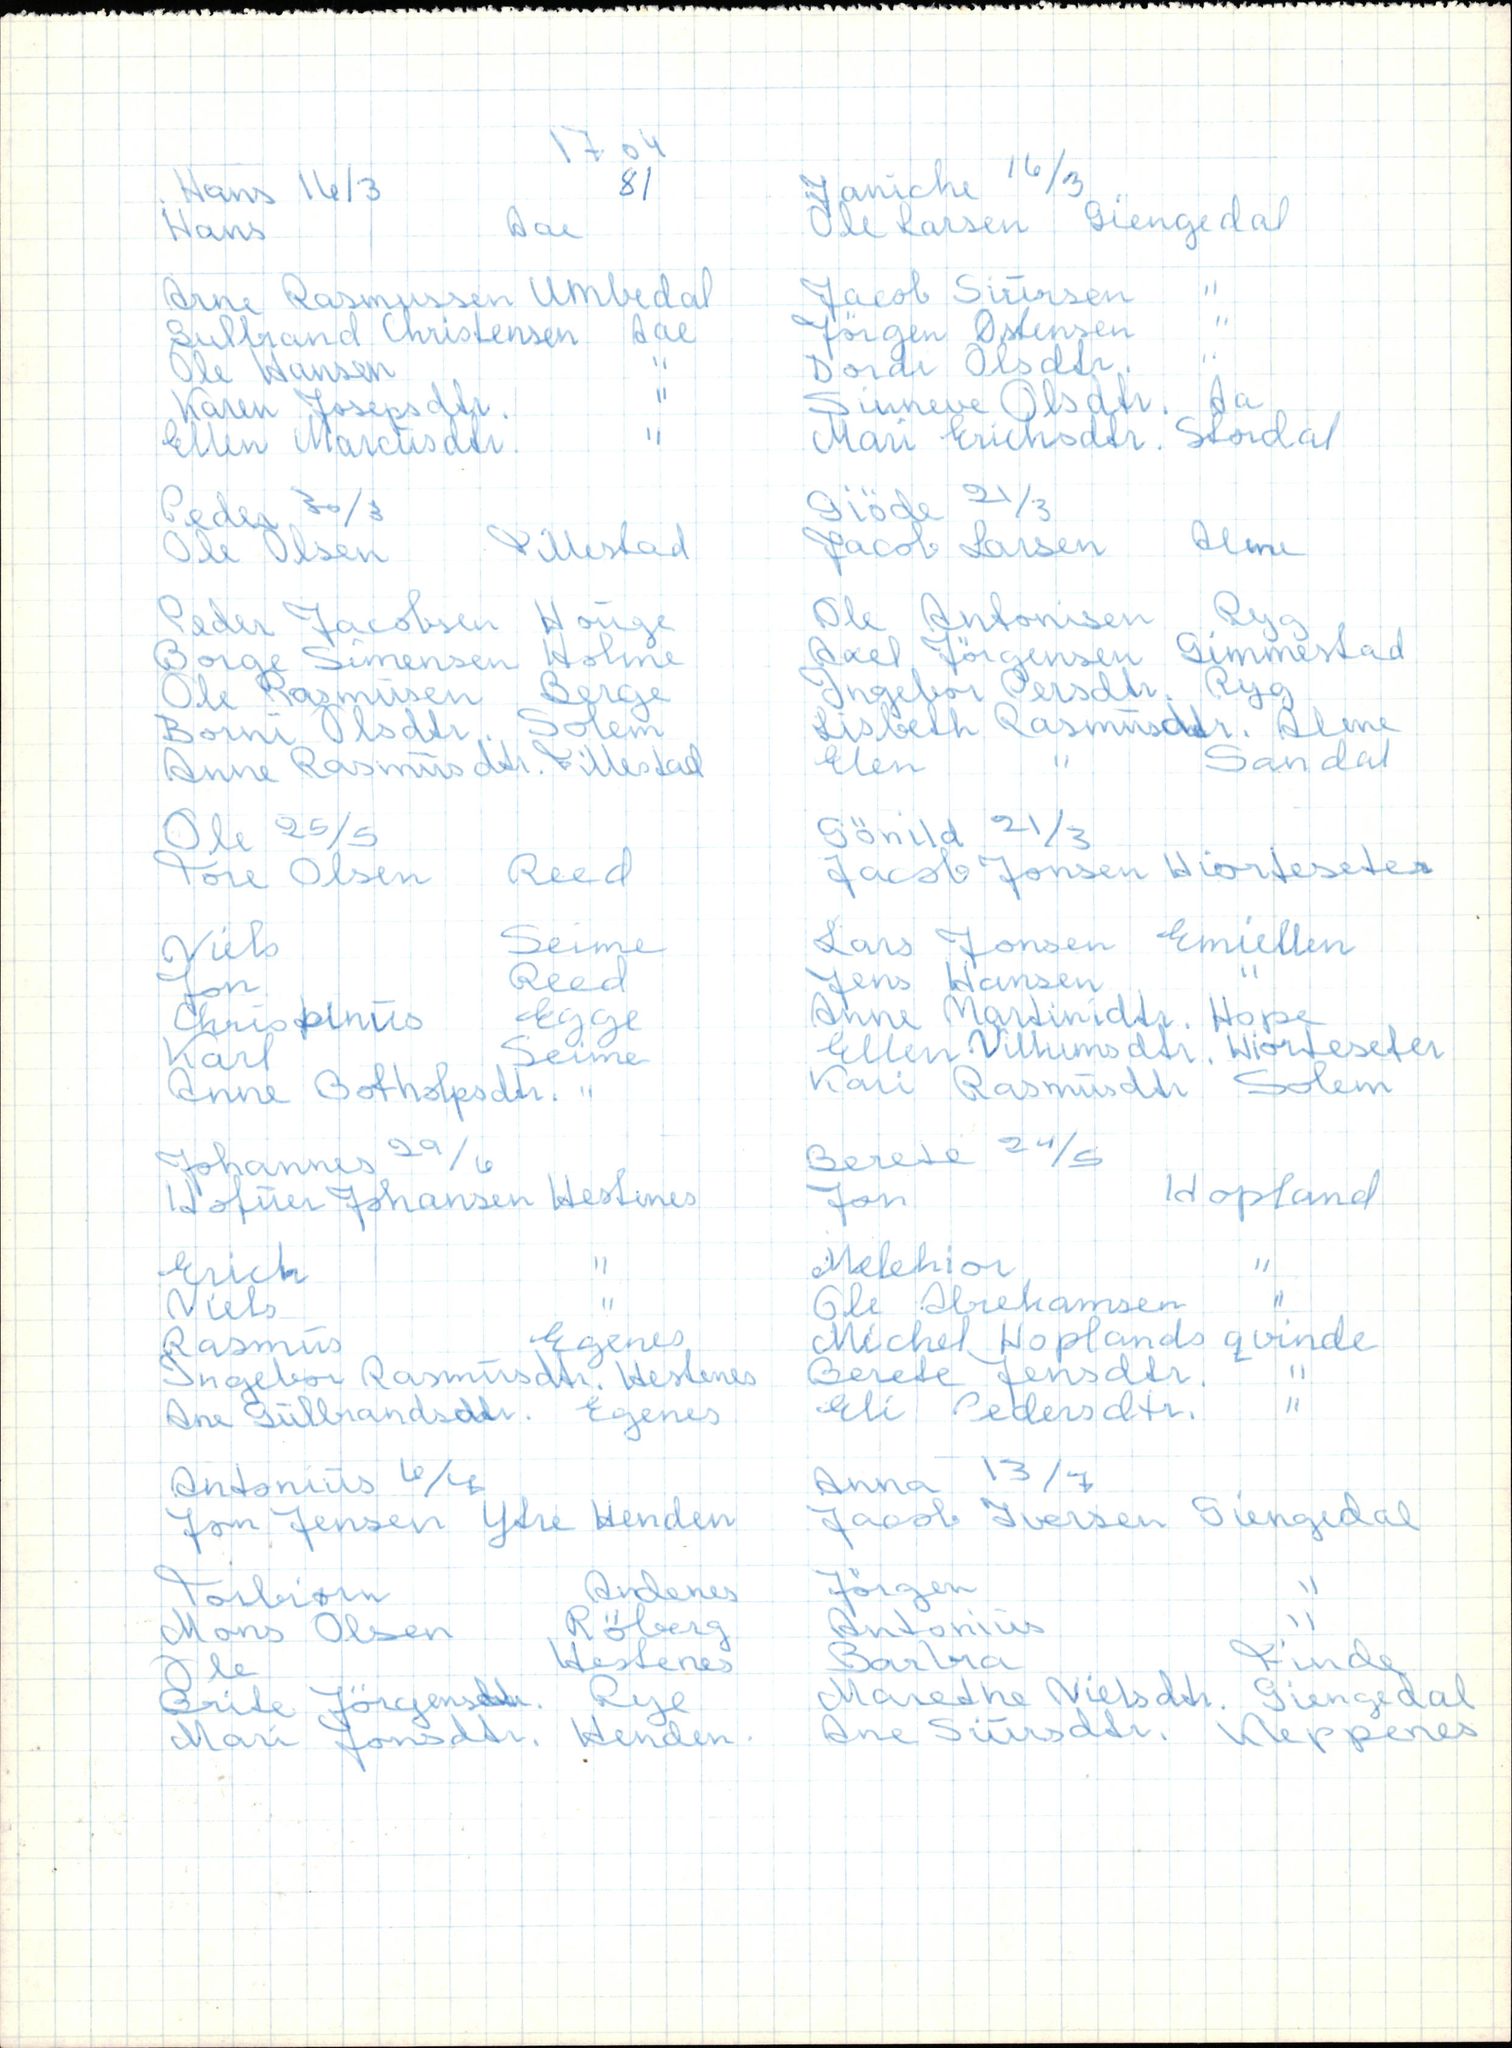 1704
Hans 16/3 81
Hans Aae
Arne Rasmussen Umbedal
Gulbrand Christensen Aae
Ole Hansen "
Karen Josepsdtr. "
Ellen Marcüsdtr. "
Peder 30/3
Ole Olsen Tillestad
Peder Jacobsen Houge
Borge Simensen Holme
Ole Rasmüsen Berge
Borni Olsdtr. Solem
Anne Rasmüsdtr. Tillestad
Ole 25/5
Tore Olsen Reed
Niels Seime
Jon Reed
Chrispinüs Egge
Karl Seime
Anne Botholpsdtr. "
Johannes 29/6
Hofüer Johansen Hestenes
Erich "
Niels "
Rasmüs Egenes
Ingebor Rasmüsdtr. Hestenes
Ane Gülbrandsdtr. Egenes
Antoniüs
Jon Jensen Ytre Henden
Torbiorn Andenes
Mons Olsen Röberg
Ole Hestenes
Brite Jörgensdtr. Rye
Mari Jonsdtr. Henden.
Janiche 16/3
Ole Larsen Giengedal
Jacob Siürsen "
Jörgen Ostensen "
Dorde Olsdtr. "
Sinneve Olsdtr. Aa
Mari Erichsdtr. Stordal
Giöde 21/3
Jacob Larsen Alme
Ole Antonisen Ryg
Axel Jörgensen Gimmestad
Ingebor Persdtr. Ryg
Lisbeth Rasmüsdtr. Alme
Elen " Sandal
Gönild 21/3
Jacob Jonsen Hiorteseter
Lars Jonsen Emiellen
Jens Hansen "
Anne Martinidtr. Hope
Ellen Vilhumsdtr. Hiorteseter
Kari Rasmüsdtr Solem
Berete 24/5
Jon Hopland
Melchior "
Ole Abrehamsen "
Michel Hoplands qvinde
Berete Jensdtr. "
Eli Pedersdtr. "
Anna 13/7
Jacob Iversen Giengedal
Jörgen "
Antoniüs "
Barbra Finde
Marethe Nielsdtr. Giengedal
Ane Siürsdtr. Kleppenes